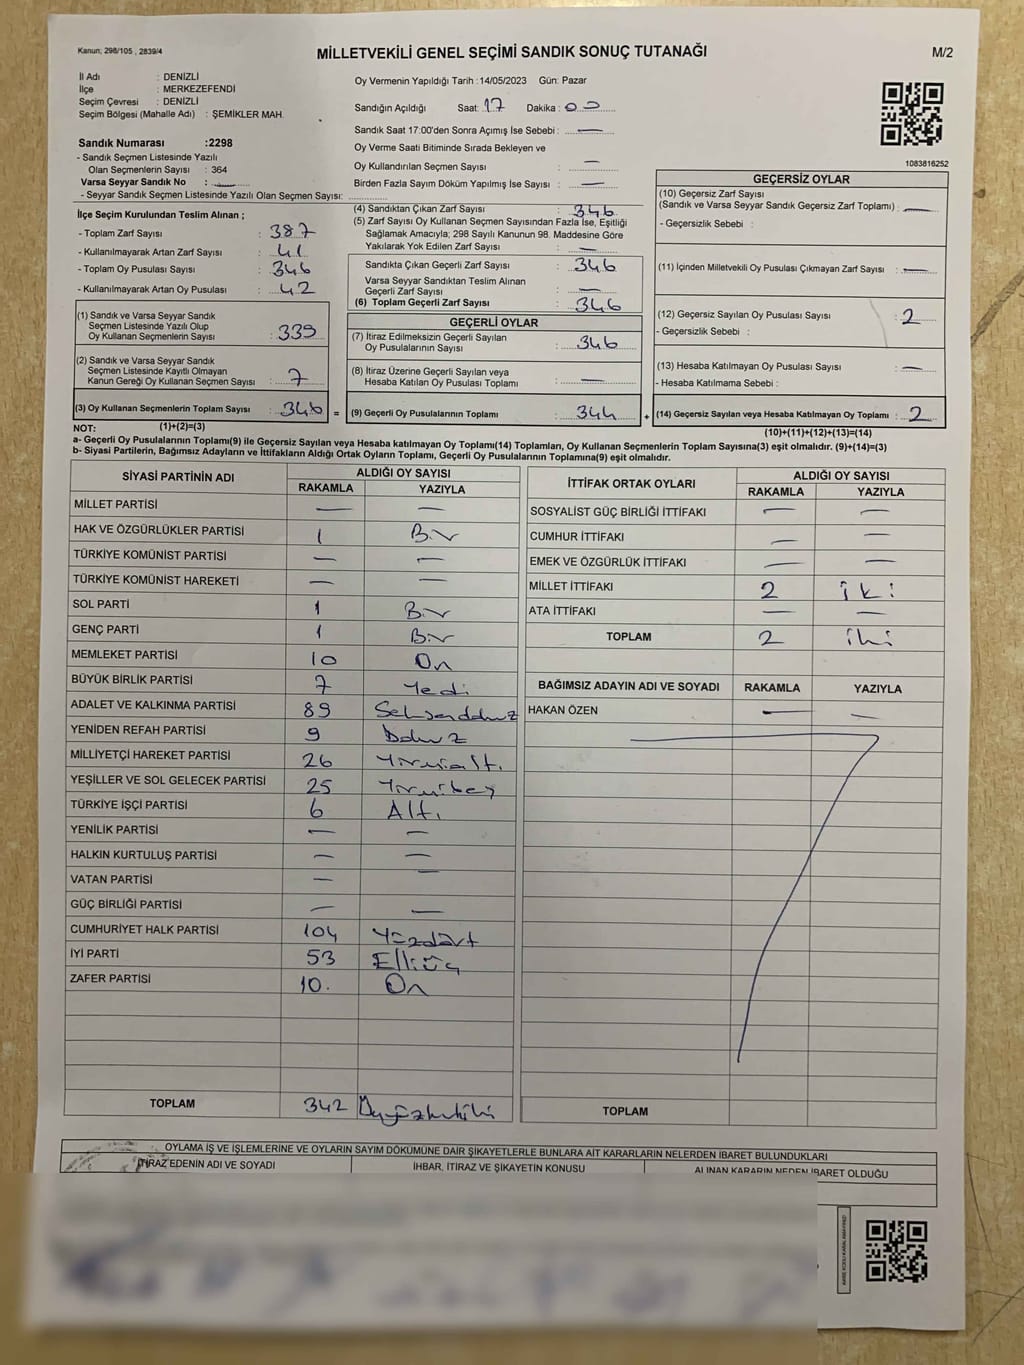 Kanun; 298/105 , 2839/4
MİLLETVEKİLİ GENEL SEÇİMİ SANDIK SONUÇ TUTANAĞI
M/2
İl Adı : DENİZLİ
İlçe : MERKEZEFENDİ
Seçim Çevresi : DENİZLİ
Seçim Bölgesi (Mahalle Adı) : ŞEMİKLER MAH.
Sandık Numarası :2298
- Sandık Seçmen Listesinde Yazılı
Olan Seçmenlerin Sayısı : 364
Varsa Seyyar Sandık No : —
- Seyyar Sandık Seçmen Listesinde Yazılı Olan Seçmen Sayısı:
Oy Vermenin Yapıldığı Tarih :14/05/2023 Gün: Pazar
Sandığın Açıldığı Saat: 17 Dakika : 00
Sandık Saat 17:00'den Sonra Açımış İse Sebebi : —
Oy Verme Saati Bitiminde Sırada Bekleyen ve
Oy Kullandırılan Seçmen Sayısı : —
Birden Fazla Sayım Döküm Yapılmış İse Sayısı : —
1083816252
İlçe Seçim Kurulundan Teslim Alınan ;
- Toplam Zarf Sayısı : 387
- Kullanılmayarak Artan Zarf Sayısı : 41
- Toplam Oy Pusulası Sayısı : 346
- Kullanılmayarak Artan Oy Pusulası : 42
(1) Sandık ve Varsa Seyyar Sandık
Seçmen Listesinde Yazılı Olup
Oy Kullanan Seçmenlerin Sayısı : 339
(2) Sandık ve Varsa Seyyar Sandık
Seçmen Listesinde Kayıtlı Olmayan
Kanun Gereği Oy Kullanan Seçmen Sayısı : 7
(3) Oy Kullanan Seçmenlerin Toplam Sayısı : 346 =
(1)+(2)=(3)
(4) Sandıktan Çıkan Zarf Sayısı : 346
(5) Zarf Sayısı Oy Kullanan Seçmen Sayısından Fazla İse, Eşitliği
Sağlamak Amacıyla; 298 Sayılı Kanunun 98. Maddesine Göre
Yakılarak Yok Edilen Zarf Sayısı : —
Sandıkta Çıkan Geçerli Zarf Sayısı : 346
Varsa Seyyar Sandıktan Teslim Alınan
Geçerli Zarf Sayısı : —
(6) Toplam Geçerli Zarf Sayısı : 346
GEÇERLİ OYLAR
(7) İtiraz Edilmeksizin Geçerli Sayılan
Oy Pusulalarının Sayısı : 346
(8) İtiraz Üzerine Geçerli Sayılan veya
Hesaba Katılan Oy Pusulası Toplamı : —
(9) Geçerli Oy Pusulalarının Toplamı : 344 +
GEÇERSİZ OYLAR
(10) Geçersiz Zarf Sayısı
(Sandık ve Varsa Seyyar Sandık Geçersiz Zarf Toplamı) : —
- Geçersizlik Sebebi :
(11) İçinden Milletvekili Oy Pusulası Çıkmayan Zarf Sayısı : —
(12) Geçersiz Sayılan Oy Pusulası Sayısı : 2
- Geçersizlik Sebebi :
(13) Hesaba Katılmayan Oy Pusulası Sayısı : —
- Hesaba Katılmama Sebebi :
(14) Geçersiz Sayılan veya Hesaba Katılmayan Oy Toplamı : 2
(10)+(11)+(12)+(13)=(14)
NOT:
a- Geçerli Oy Pusulalarının Toplamı(9) ile Geçersiz Sayılan veya Hesaba katılmayan Oy Toplamı(14) Toplamları, Oy Kullanan Seçmenlerin Toplam Sayısına(3) eşit olmalıdır. (9)+(14)=(3)
b- Siyasi Partilerin, Bağımsız Adayların ve İttifakların Aldığı Ortak Oyların Toplamı, Geçerli Oy Pusulalarının Toplamına(9) eşit olmalıdır.
SİYASİ PARTİNİN ADI ALDIĞI OY SAYISI
RAKAMLA YAZIYLA
MİLLET PARTİSİ — —
HAK VE ÖZGÜRLÜKLER PARTİSİ 1 Bir
TÜRKİYE KOMÜNİST PARTİSİ — —
TÜRKİYE KOMÜNİST HAREKETİ — —
SOL PARTİ 1 Bir
GENÇ PARTİ 1 Bir
MEMLEKET PARTİSİ 10 On
BÜYÜK BİRLİK PARTİSİ 7 Yedi
ADALET VE KALKINMA PARTİSİ 89 Seksendokuz
YENİDEN REFAH PARTİSİ 9 Dokuz
MİLLİYETÇİ HAREKET PARTİSİ 26 Yirmialtı
YEŞİLLER VE SOL GELECEK PARTİSİ 25 Yirmibeş
TÜRKİYE İŞÇİ PARTİSİ 6 Altı
YENİLİK PARTİSİ — —
HALKIN KURTULUŞ PARTİSİ — —
VATAN PARTİSİ — —
GÜÇ BİRLİĞİ PARTİSİ — —
CUMHURİYET HALK PARTİSİ 104 Yüzdört
İYİ PARTİ 53 Elliüç
ZAFER PARTİSİ 10. On
TOPLAM 342 Üçyüzkırkiki
İTTİFAK ORTAK OYLARI ALDIĞI OY SAYISI
RAKAMLA YAZIYLA
SOSYALİST GÜÇ BİRLİĞİ İTTİFAKI — —
CUMHUR İTTİFAKI — —
EMEK VE ÖZGÜRLÜK İTTİFAKI — —
MİLLET İTTİFAKI 2 İki
ATA İTTİFAKI — —
TOPLAM 2 iki
BAĞIMSIZ ADAYIN ADI VE SOYADI RAKAMLA YAZIYLA
HAKAN ÖZEN — —
TOPLAM
OYLAMA İŞ VE İŞLEMLERİNE VE OYLARIN SAYIM DÖKÜMÜNE DAİR ŞİKAYETLERLE BUNLARA AİT KARARLARIN NELERDEN İBARET BULUNDUKLARI
İTİRAZ EDENİN ADI VE SOYADI İHBAR, İTİRAZ VE ŞİKAYETİN KONUSU ALINAN KARARIN NEDEN İBARET OLDUĞU